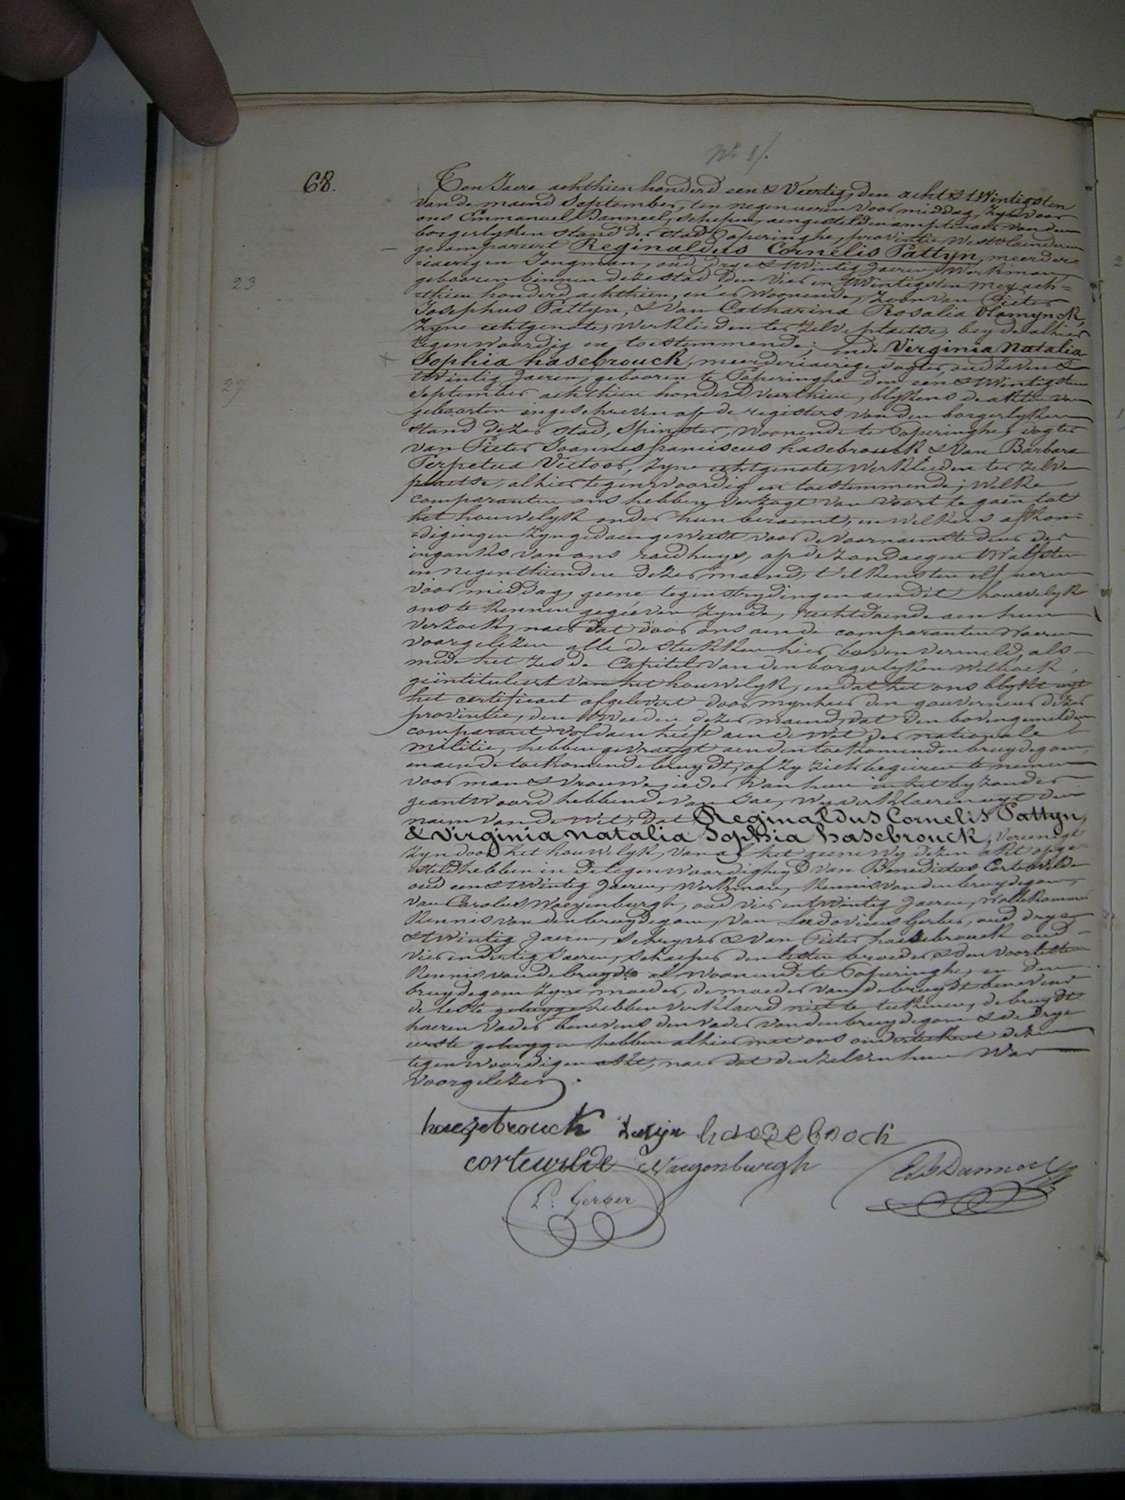 68.
Ten Jaere achthien honderd een & Veertig, den acht & twintigsten
van de maend September, ten negen ueren voor middag, zyn voor
ons Emmanuel Danneel, schepen aengesteld en amptenaer van den
borgerlyken stand der stad Poperinghe, provintie Westvlaenderen
gecompareert Reginaldus Cornelis Pattyn, meerder
jaerigen Jongman, oud drye & twintig Jaeren, Werkman,
23
gebooren binnen deze stad den vier en twintigsten mey ach-
thien honderd achthien, en er woonende, zoon van Pieter
Josephus Pattyn, & van Catharina Rosalia Vlamynck,
zyne echtgenote, werklieden ter zelve plaetse, beyde alhier
tegenwoordig en toestemmende; ende Verginia Natalia
Sophia hasebrouck, meerderjaerige dogter, oud zeven &
27
twintig Jaeren, gebooren te Poperinghe den een & twintigsten
September achthien honderd veerthien, blykens de akten van
geboorten ingeschreven op de registers van den borgerlyken
stand dezer stad, Spinster, woonende te Poperinghe, dogter
van Pieter Joannes franciscus hasebrouck & van Barbara
Perpetua Victoor, zyne echtgenote, werklieden ter zelve
plaetse, alhier tegenwoordig en toestemmende; welke
comparanten ons hebben verzogt van voort te gaen tot
het houwelyk onder hun beraemt, en welkers afkon-
digingen zyn gedaen geweest voor de voornaemste deur der
inganks van ons raedhuys, op de zondaegen twalfsten
en negenthienden dezer maend, t'elkensten elf ueren
voor middag, geene tegenstrydingen aen dit houwelyk
ons te kennen gegeven zynde, rechtdoende aen hun
verzoek, naer dat door ons aen de comparanten waeren
voorgelezen alle de stukken hier boven vermeld, als-
mede het zesde Capittel van den borgerlyken wetboek,
geïntituleert van het houwelyk, en dat het ons blykt uyt
het certificaet afgelevert door mynheer den gouverneur dezer
provintie, den tweeden dezer maend, dat den bovengemelden
comparant voldaen heeft aen de wet der nationale
militie, hebben gevraegt aen den toekomenden bruydegom,
en aen de toekomende bruydt, of zy zich begeeren te nemen
voor man & vrouwe; ieder van hun in het byzonder
geantwoord hebbende van Jae, wy verklaeren uyt den
naem van de wet, dat Reginaldus Cornelis Pattyn,
& Virginia natalia Sophia hasebrouck, vereenigt
zyn door het houwelyk, van al het geene wy dezen akt opge-
steld hebben in de tegenwoordigheyd van Benedictus Cortewilde
oud een & twintig Jaeren, Werkman, kennis van den bruydegom,
van Carolus Waeyenburgh, oud vier en twintig Jaeren,
kennis van den bruydegom, van Ludovicus Gerber, oud drye
& twintig Jaeren, schryver & van Pieter hasebrouck oud
vier en dertig Jaeren, schaeper den lesten broeder & den voorlesten
kennis van de bruydt al woonende te Poperinghe, en den
bruydegom zyne moeder, de moeder van de bruydt benevens
de leste getuyge hebben verklaerd niet te teekenen, de bruydt
haeren vader benevens den vader van den bruydegom & de drye
eerste getuygen hebben alhier met ons onderteekent dezen
tegenwoordigen akt, naer dat den zelven hun was
voorgelezen.
haezebrouck hasebroeck
cortewilde Waeyenburgh
L. Gerber